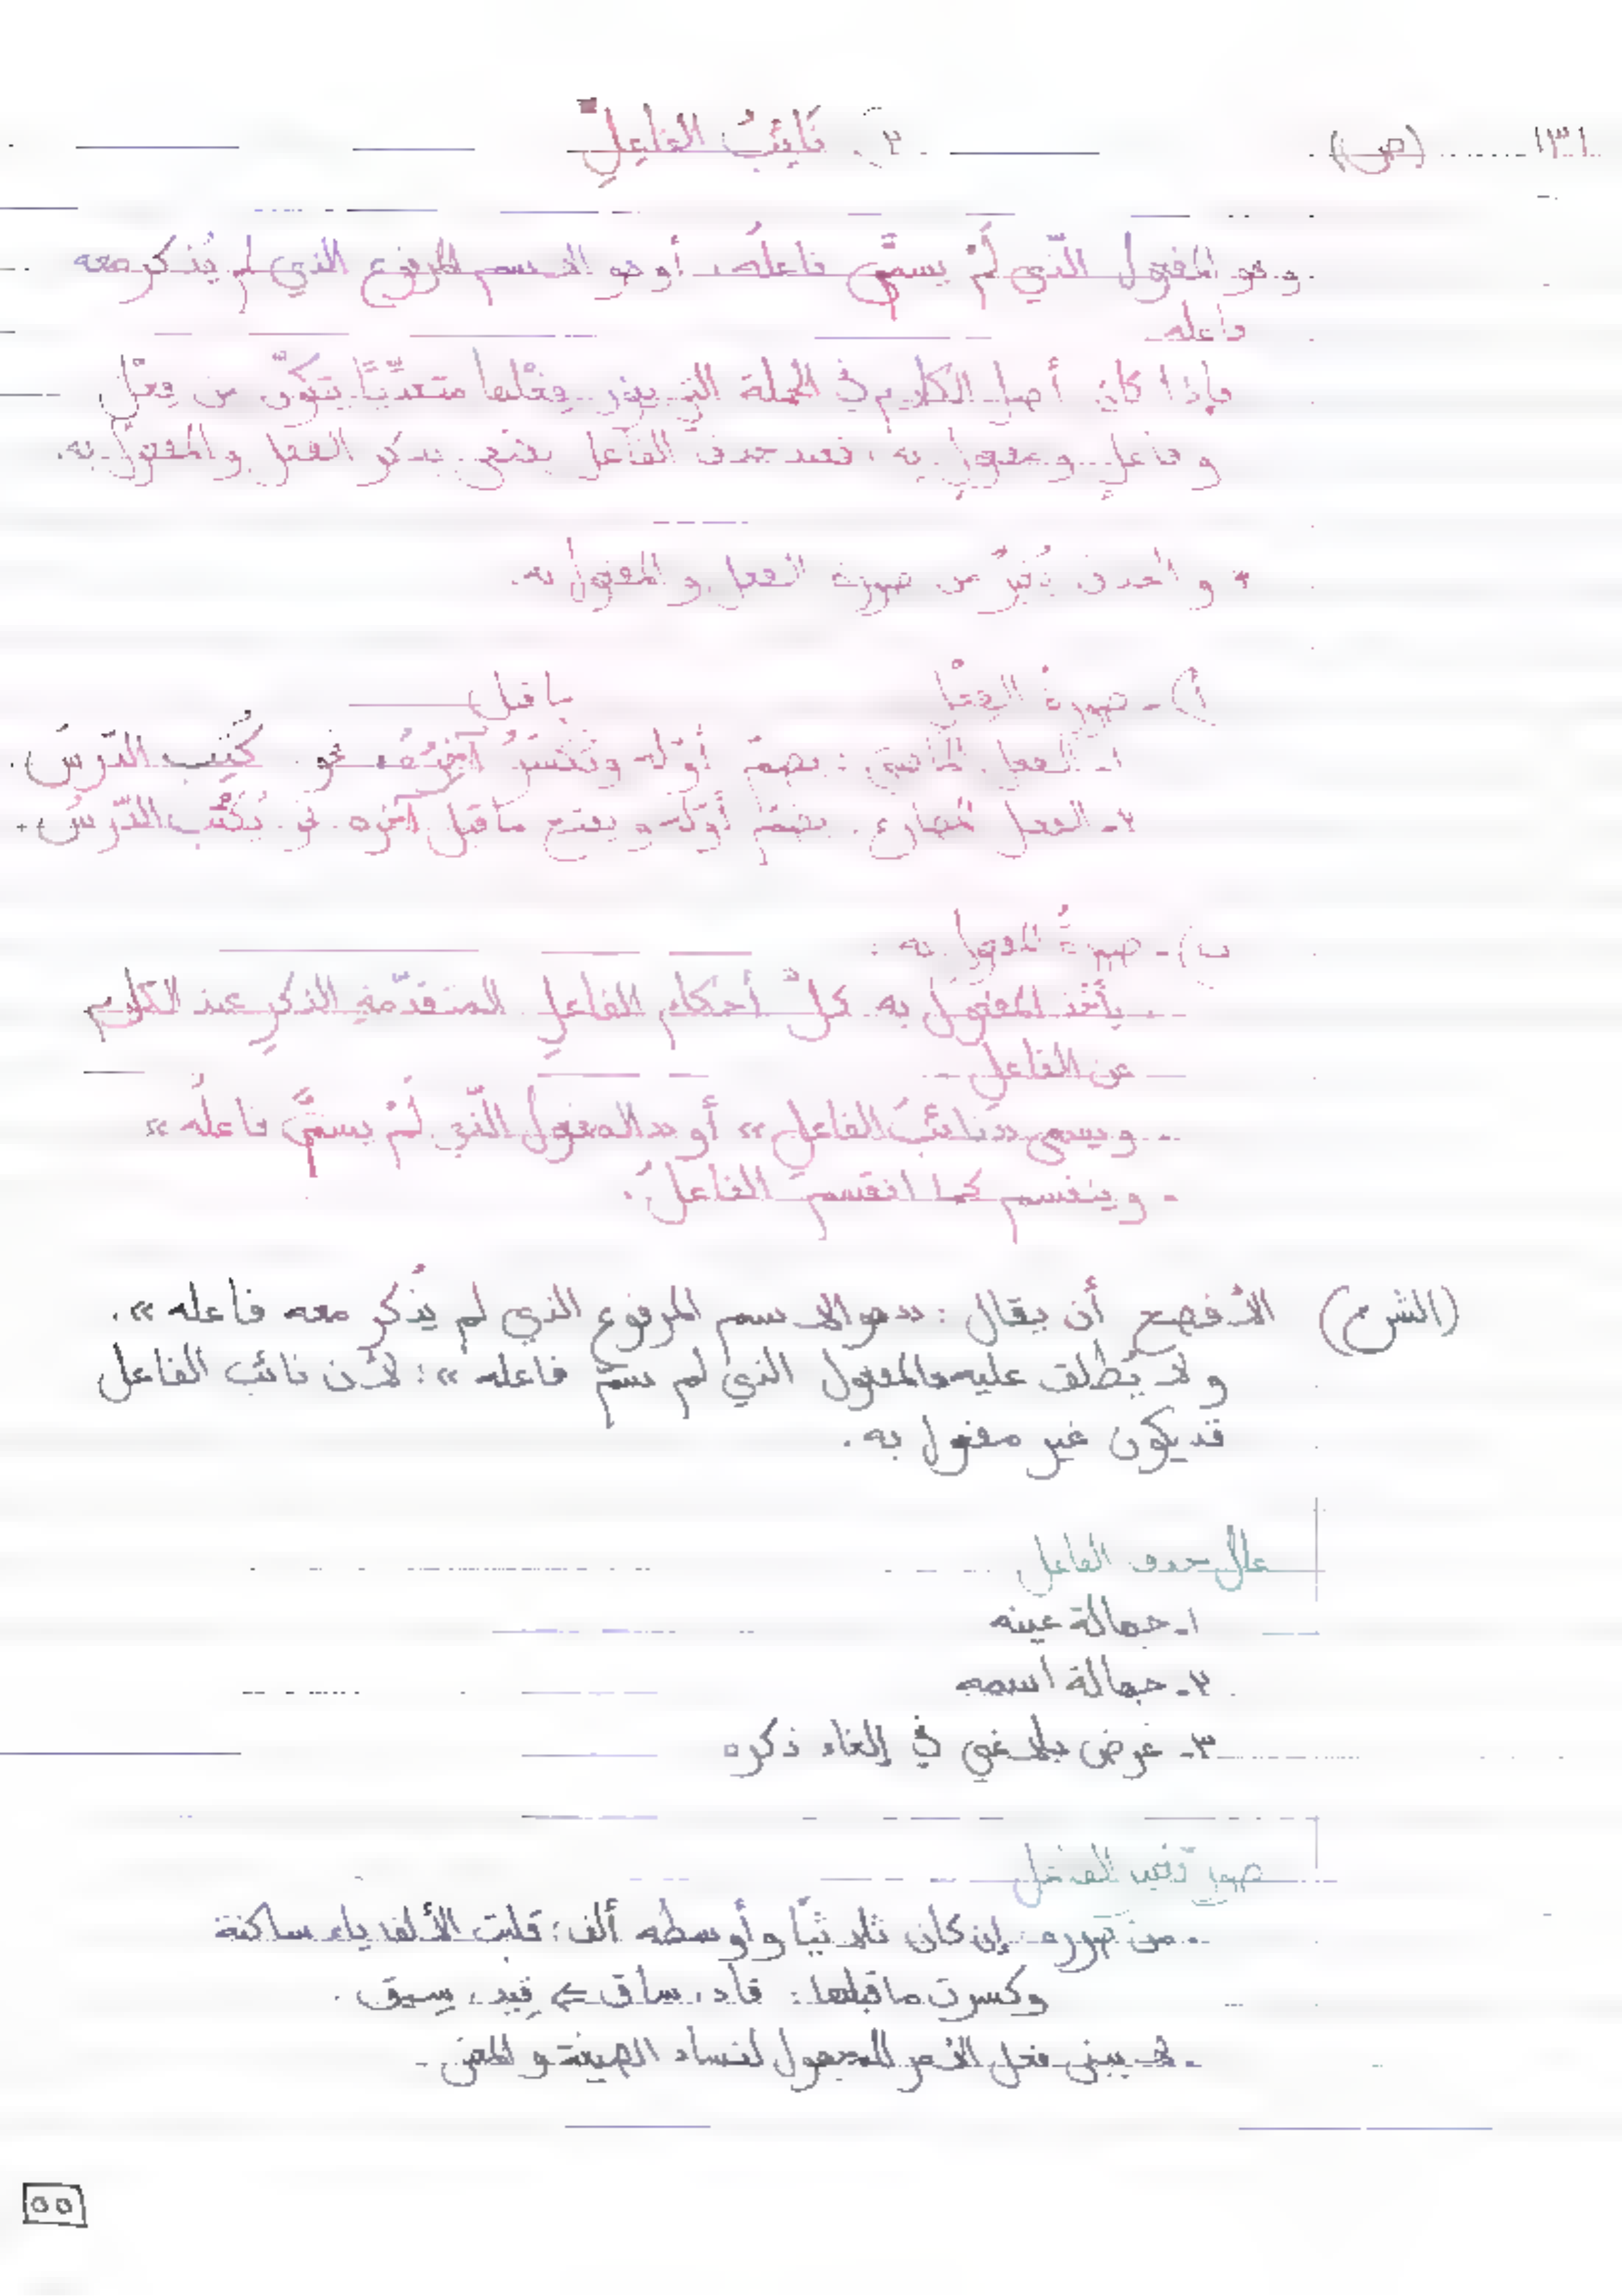 ١٣١ (ص) ٢). نَائِبُ الفَاعِلِ
وهو المفعول الّذي لَمْ يسمَّ فاعلُه، أو هو الاسم المرفوع الذي لم يُذكر معه
فاعله
فإذا كان أصل الكلام في الجملة التي يكون فِعْلها متعدّيًا يتكوّن من فِعْلٍ
وفاعلٍ ومفعولٍ به، فعند حذف الفاعل يكتفى بذكر الفعل والمفعول به.
* والحذف يُغيّرُ من صورة الفعل والمفعول به.
أ) - صورة الفِعْل
ما قبل
١- الفعل الماضي: يضمّ أوّله وتُكْسَرُ آخِرُهُ، نحو: كُتِبَ الدّرسُ.
٢- الفعل المضارع: يضمّ أوّله ويفتح ما قبل آخره نحو: يُكْتَب الدّرسُ.
ب) - صورةُ المفعول به:
- يأخذ المفعول به كلَّ أحكام الفاعلِ المتقدّمةِ الذكرِ عند الكلام
عن الفاعلِ
- ويسمى «نائبَ الفاعلِ» أو «المفعولَ الّذي لَمْ يسمَّ فاعلُه»
- وينقسم كما انقسم الفاعلُ.
(الشرح) الأفصح أن يقال: «هو الاسم المرفوع الذي لم يُذكر معه فاعله».
ولا يُطلق عليه «المفعول الذي لم يسمّ فاعله»: لأن نائب الفاعل
قد يكون غير مفعول به.
علل حذف الفاعل
١- جهالة عينه
٢- جهالة اسمه
٣- غرض بلاغي في إلغاء ذكره
صور تغير الفعل
- من صوره: إن كان ثلاثيًّا وأوسطه ألف: قلبت الألف ياء ساكنة
وكسرت ما قبلها: قاد، ساق ⇐ قِيد، سِيق.
- لا يبنى فعل الأمر للمجهول لفساد الصيغة والمعنى.
٥٥